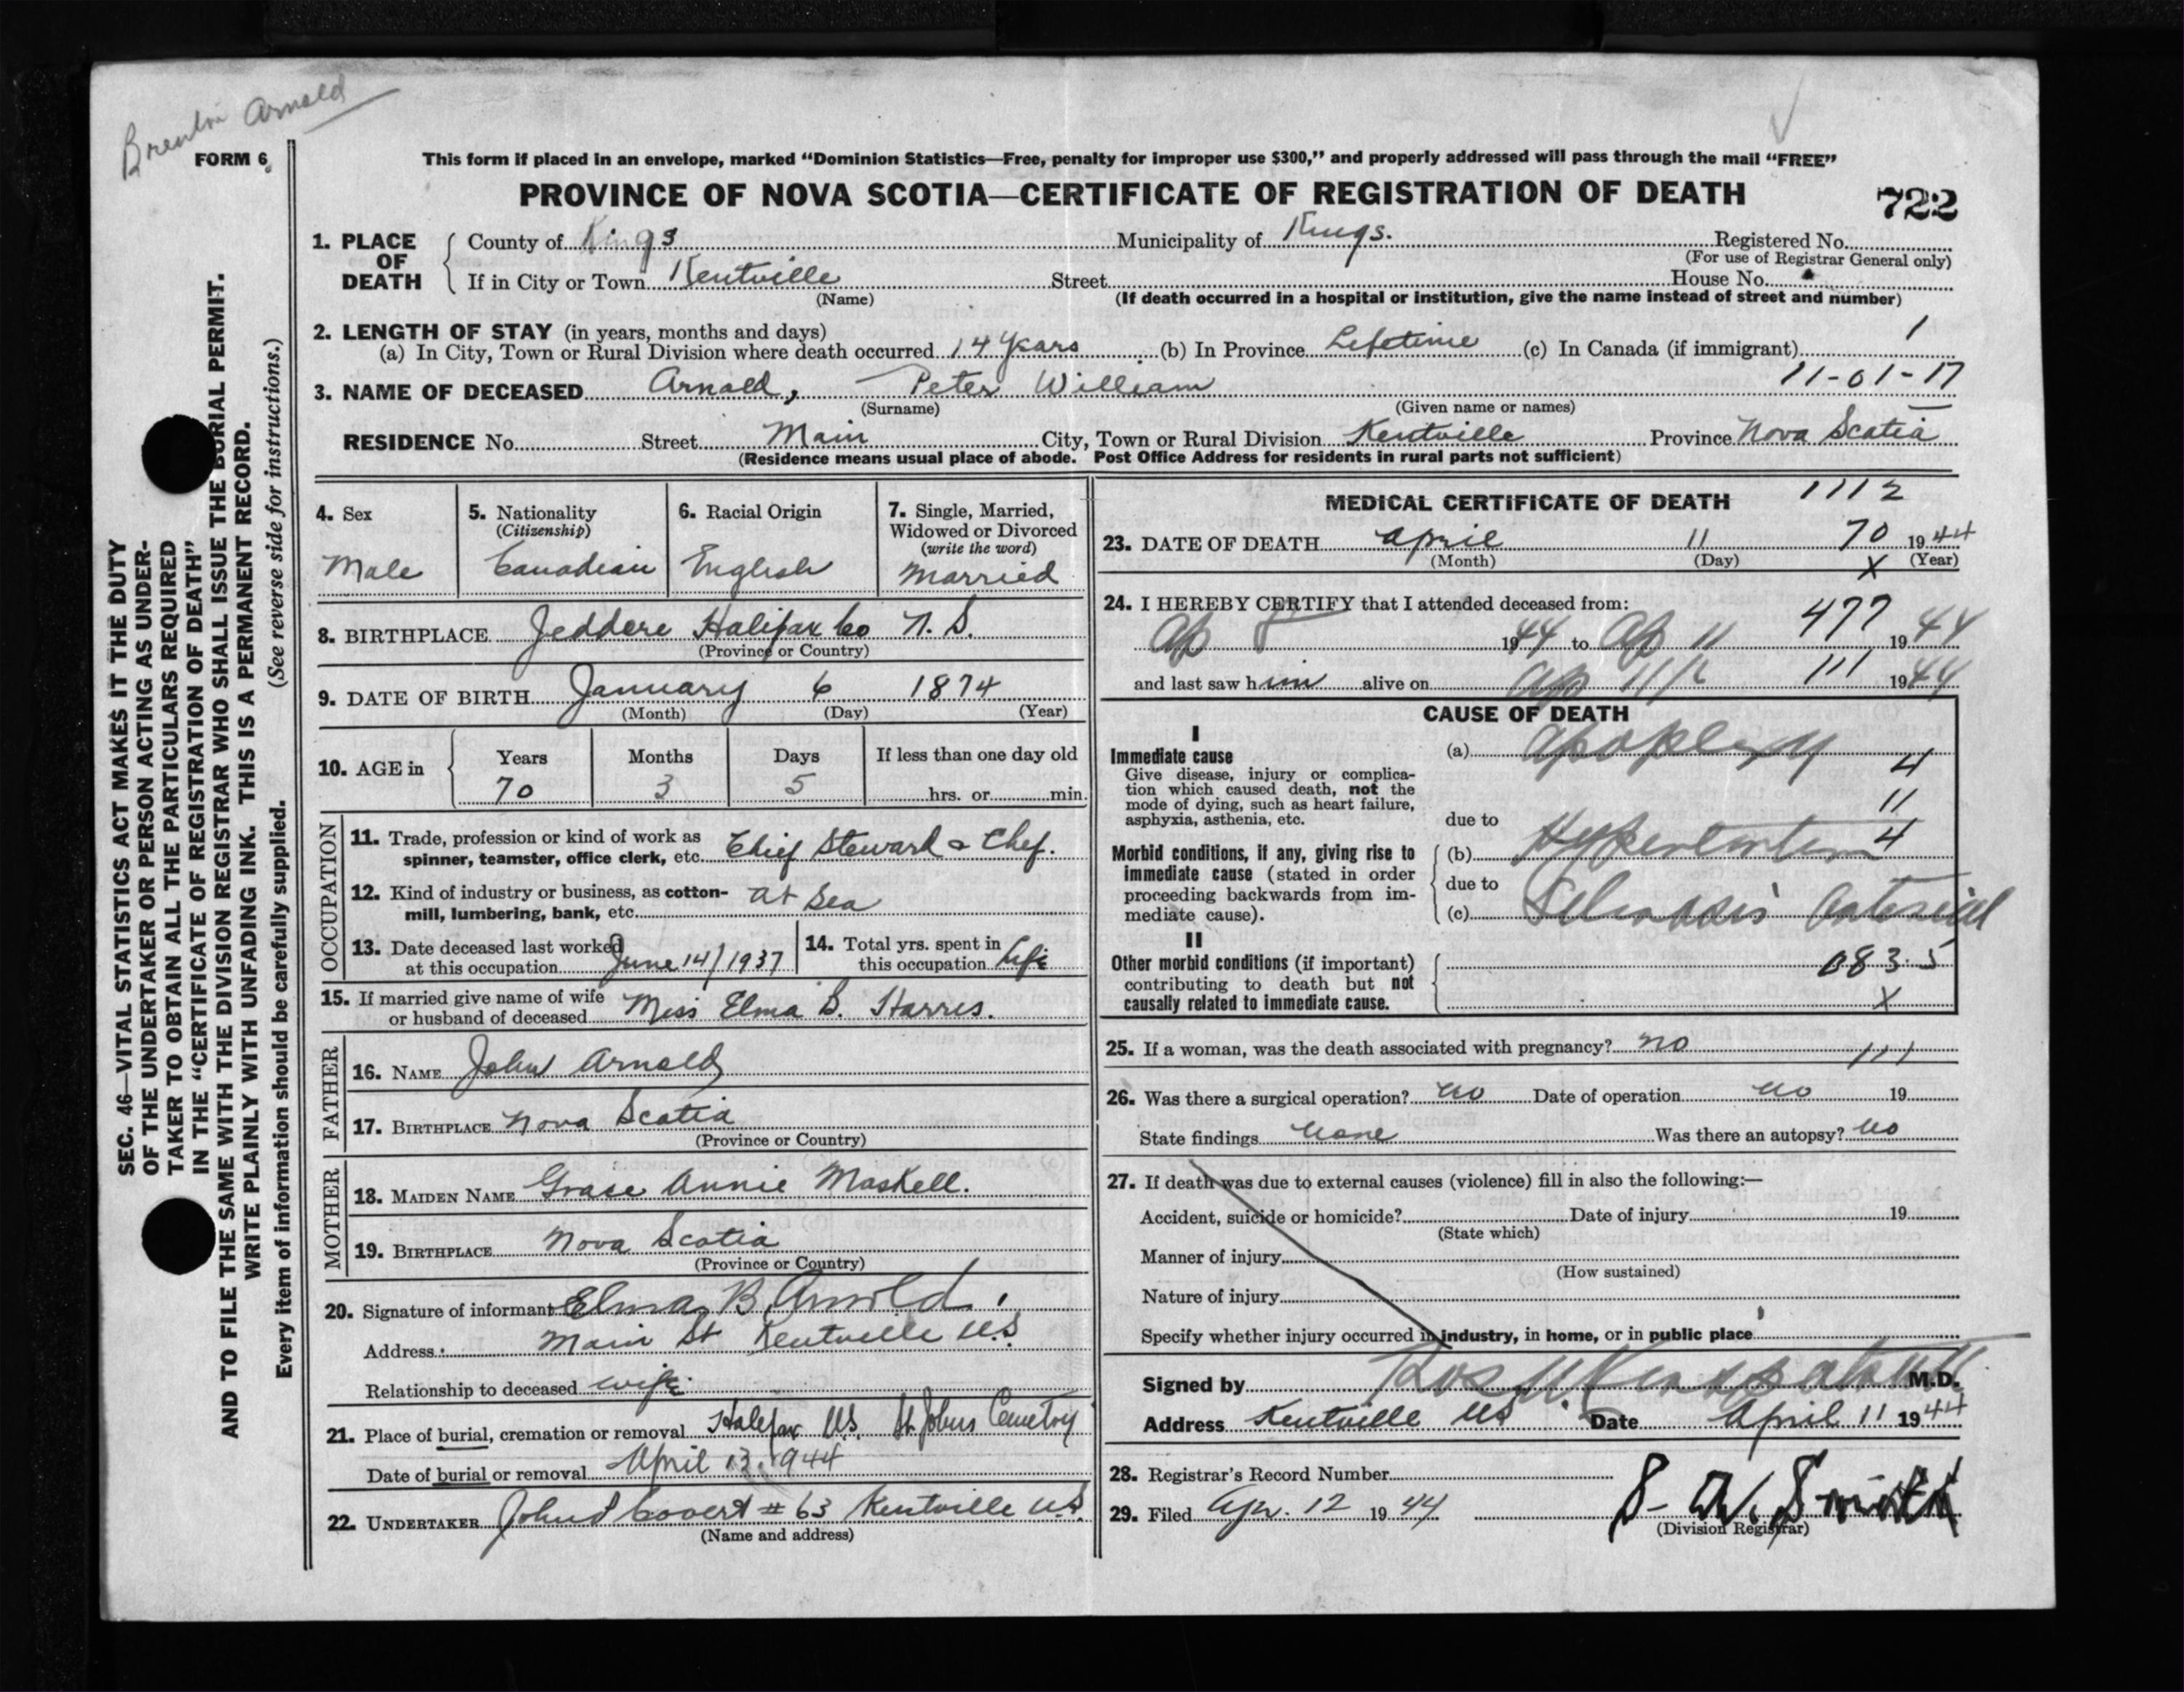 Arnold
FORM 6
This form if placed in an envelope, marked “Dominion Statistics—Free, penalty for improper use $300,” and properly addressed will pass through the mail “FREE”
PROVINCE OF NOVA SCOTIA—CERTIFICATE OF REGISTRATION OF DEATH
722
SEC. 46—VITAL STATISTICS ACT MAKES IT THE DUTY
OF THE UNDERTAKER OR PERSON ACTING AS UNDER-
TAKER TO OBTAIN ALL THE PARTICULARS REQUIRED
IN THE “CERTIFICATE OF REGISTRATION OF DEATH”
AND TO FILE THE SAME WITH THE DIVISION REGISTRAR WHO SHALL ISSUE THE BURIAL PERMIT.
WRITE PLAINLY WITH UNFADING INK. THIS IS A PERMANENT RECORD.
Every item of information should be carefully supplied. (See reverse side for instructions.)
1. PLACE OF DEATH
County of Kings Municipality of Kings. Registered No.
(For use of Registrar General only)
If in City or Town Kentville Street House No.
(Name) (If death occurred in a hospital or institution, give the name instead of street and number)
2. LENGTH OF STAY (in years, months and days) 1
(a) In City, Town or Rural Division where death occurred 14 Years (b) In Province Lifetime (c) In Canada (if immigrant)
11-01-17
3. NAME OF DECEASED Arnold, Peter William
(Surname) (Given name or names)
RESIDENCE No. Street Main City, Town or Rural Division Kentville Province Nova Scotia
(Residence means usual place of abode. Post Office Address for residents in rural parts not sufficient)
4. Sex
Male
5. Nationality
(Citizenship)
Canadian
6. Racial Origin
English
7. Single, Married,
Widowed or Divorced
(write the word)
Married
8. BIRTHPLACE Jeddore Halifax Co N.S.
(Province or Country)
9. DATE OF BIRTH January 6 1874
(Month) (Day) (Year)
10. AGE in
Years Months Days If less than one day old
70 3 5 hrs. or min.
OCCUPATION
11. Trade, profession or kind of work as
spinner, teamster, office clerk, etc. Chief Steward & Chef.
12. Kind of industry or business, as cotton-
mill, lumbering, bank, etc. at Sea
13. Date deceased last worked
at this occupation June 14/1937
14. Total yrs. spent in
this occupation Life
15. If married give name of wife
or husband of deceased Miss Elma B. Harris.
FATHER
16. NAME John Arnold
17. BIRTHPLACE Nova Scotia
(Province or Country)
MOTHER
18. MAIDEN NAME Grase Annie Maskell.
19. BIRTHPLACE Nova Scotia
(Province or Country)
20. Signature of informant Elma B. Arnold
Address Main St Kentville N.S
Relationship to deceased wife
21. Place of burial, cremation or removal Halifax N.S. St Johns Cemetry
Date of burial or removal April 13. 1944
22. UNDERTAKER # 63 Kentville N.S.
(Name and address)
MEDICAL CERTIFICATE OF DEATH 1112
23. DATE OF DEATH April 11 70 1944
(Month) (Day) X (Year)
24. I HEREBY CERTIFY that I attended deceased from: 477
Ap 1944 to Ap 11 1944
and last saw him alive on Ap 11 111 1944
CAUSE OF DEATH
I
Immediate cause
Give disease, injury or complica-
tion which caused death, not the
mode of dying, such as heart failure,
asphyxia, asthenia, etc.
(a) Apoplexy
4
11
due to
4
Morbid conditions, if any, giving rise to
immediate cause (stated in order
proceeding backwards from im-
mediate cause).
(b) Hypertension
due to
(c) arterial
II
Other morbid conditions (if important)
contributing to death but not
causally related to immediate cause.
083.5
X
25. If a woman, was the death associated with pregnancy? no 111
26. Was there a surgical operation? no Date of operation no 19
State findings none Was there an autopsy? no
27. If death was due to external causes (violence) fill in also the following:—
Accident, suicide or homicide? Date of injury 19
(State which)
Manner of injury
(How sustained)
Nature of injury
Specify whether injury occurred in industry, in home, or in public place
Signed by M.D.
Address Kentville NS Date April 11 1944
28. Registrar’s Record Number
29. Filed Apr. 12 1944 Smith
(Division Registrar)